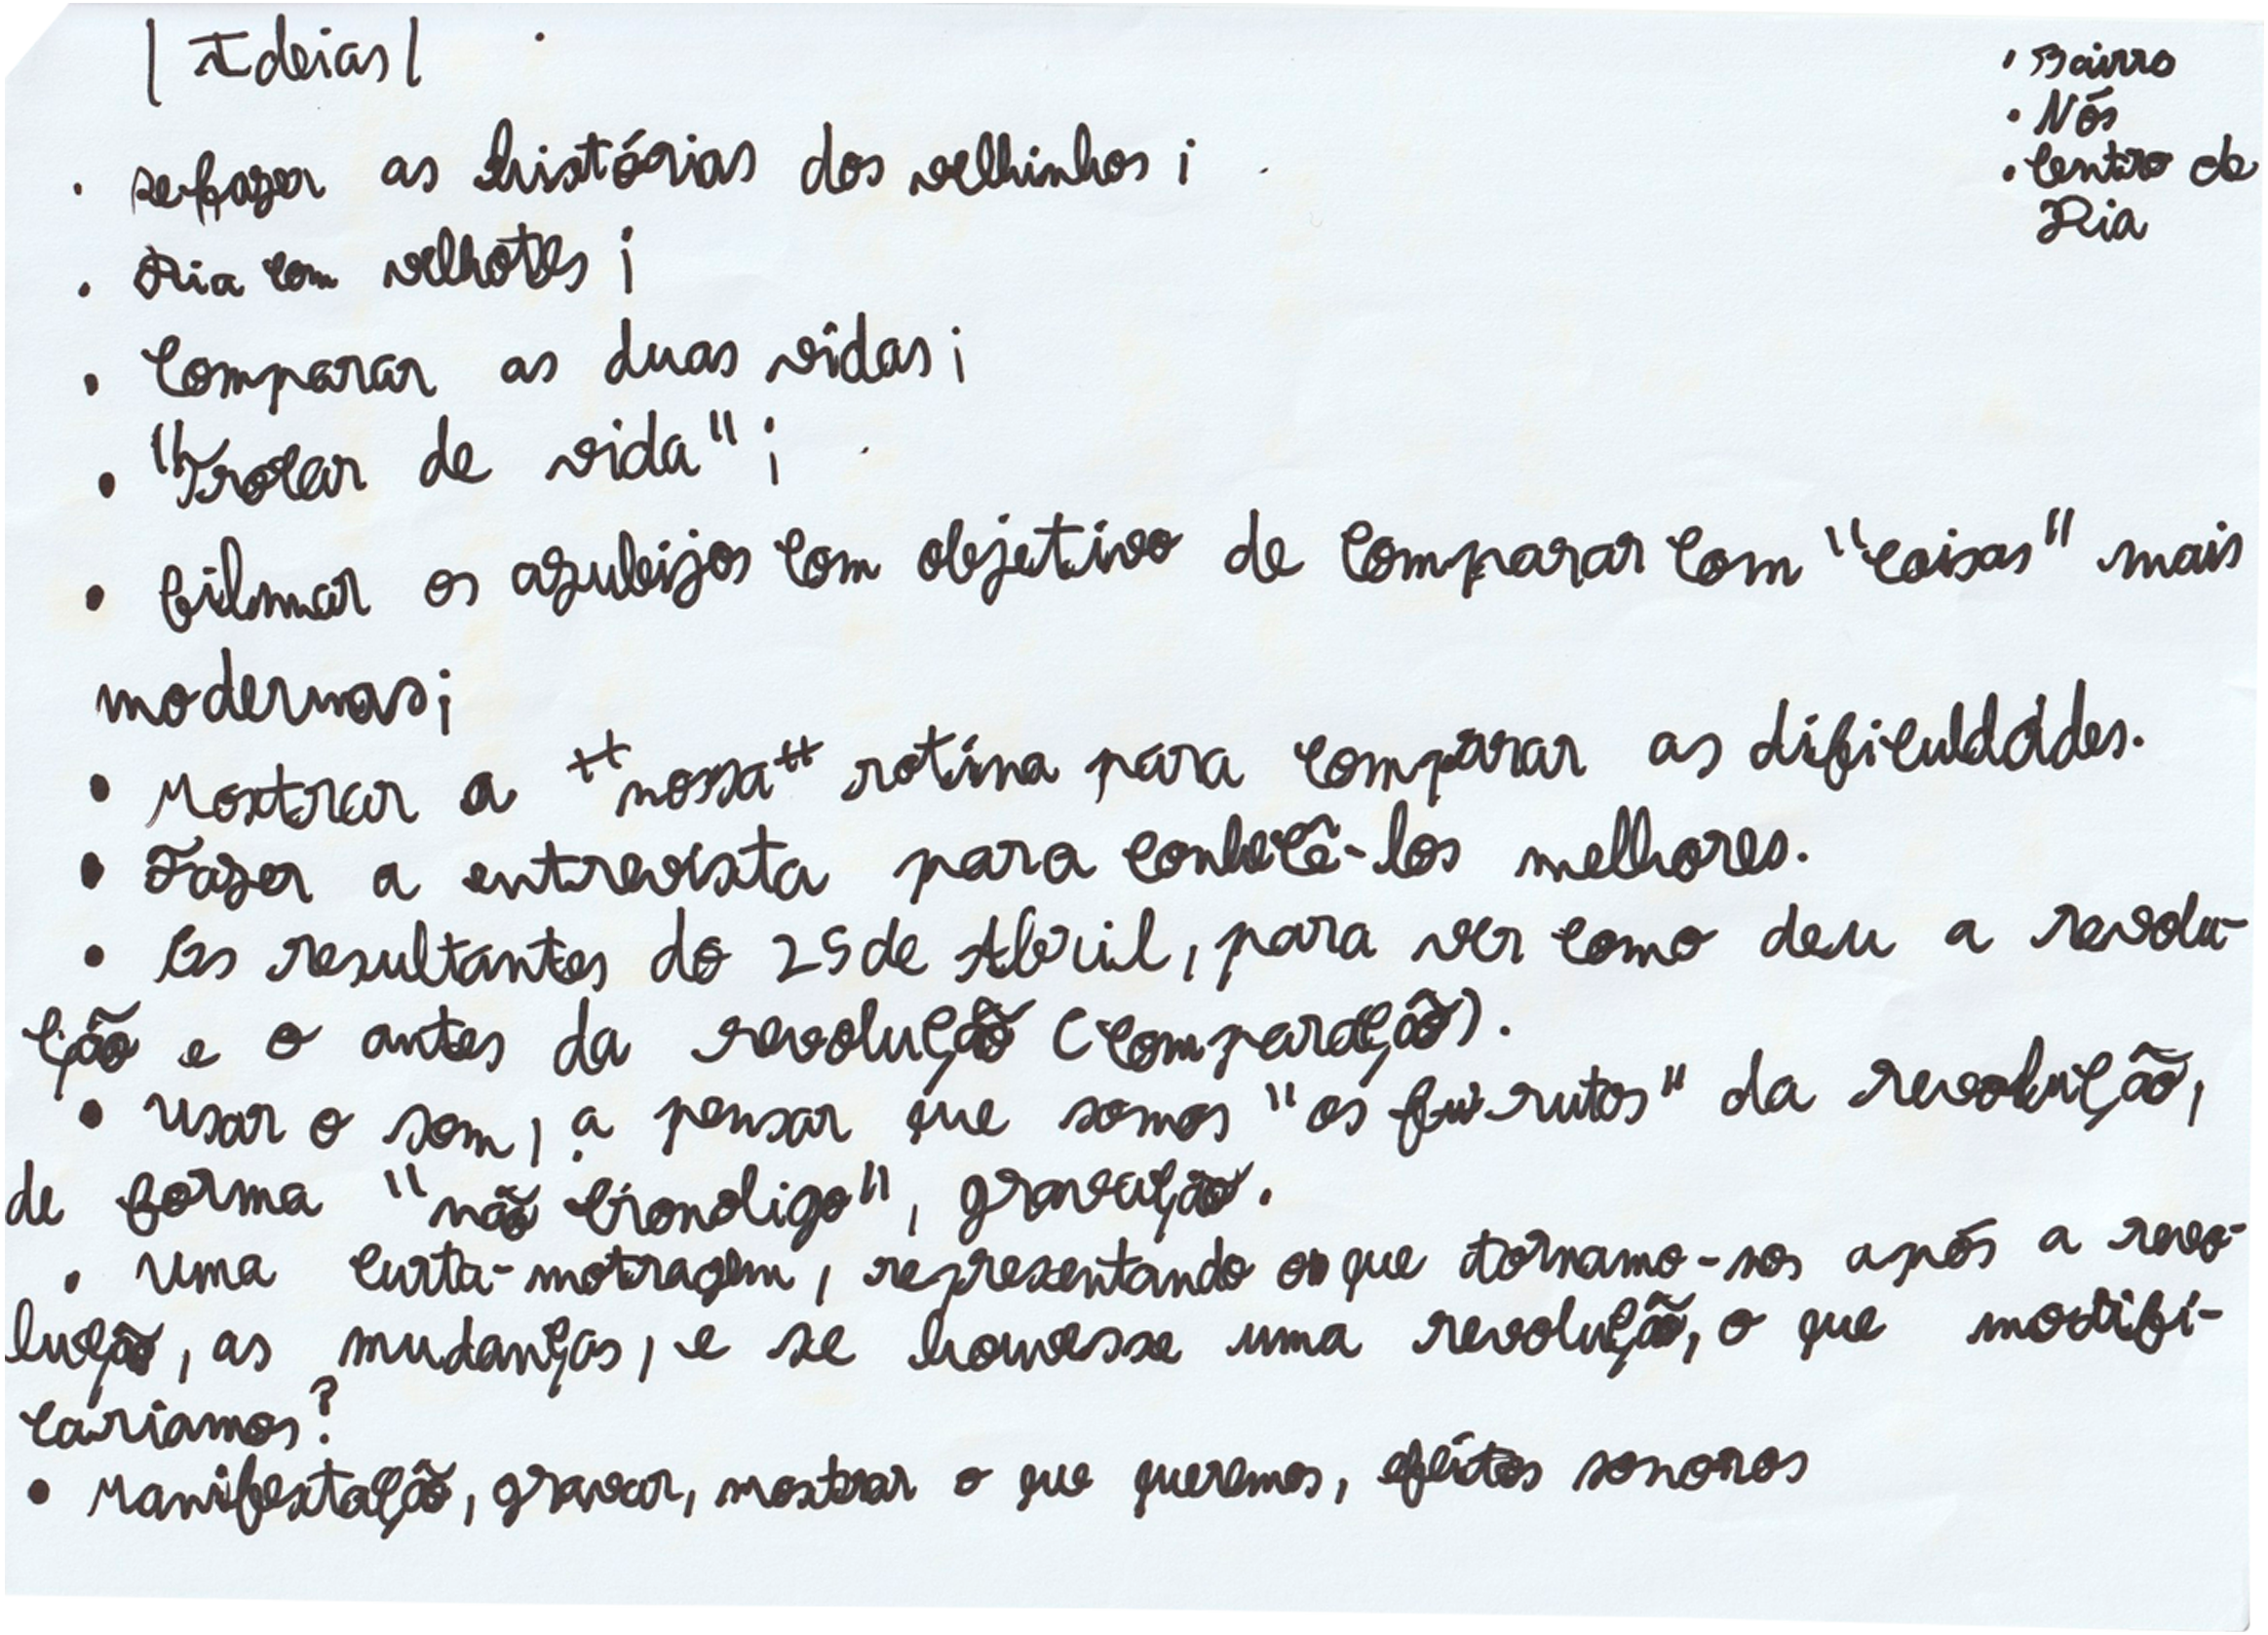 | Ideias |
• Bairro
• Nós
• Centro de
Dia
• refazer as histórias dos velhinhos ;
• Dia com velhotes ;
• Comparar as duas vidas ;
• "Trocar de vida" ;
• filmar os azuleijos com objetivo de comparar com "coisas" mais
modernas ;
• Mostrar a "nossa" rotina para comparar as dificuldades.
• Fazer a entrevista para conhecê-los melhores.
• Os resultantes do 25 de Abril, para ver como deu a revolu-
ção e o antes da revolução (comparação).
• Usar o som, a pensar que somos "os frutos" da revolução,
de forma "não cronoligo", gravação.
• Uma curta-motragem, representando o que tornamo-nos após a revo-
lução, as mudanças, e se houvesse uma revolução, o que modifi-
caríamos?
• Manifestação, gravar, mostrar o que queremos, efeitos sonoros